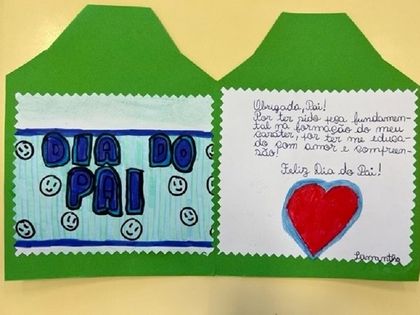 DIA DO
PAI
Obrigada, Pai!
Por ter sido peça fundamen-
tal na formação do meu
caráter, por ter me educa-
do com amor e compreen-
são!
Feliz Dia do Pai!
Samantha